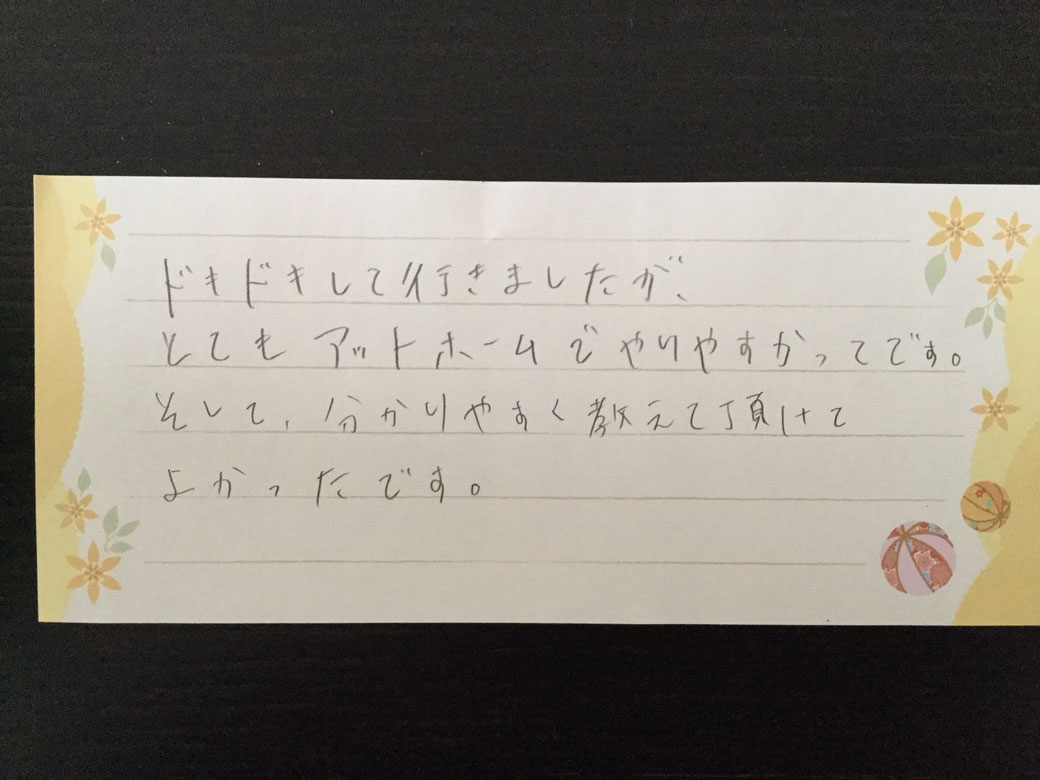 ドキドキして行きましたが、
とてもアットホームでやりやすかってです。
そして、分かりやすく教えて頂けて
よかったです。